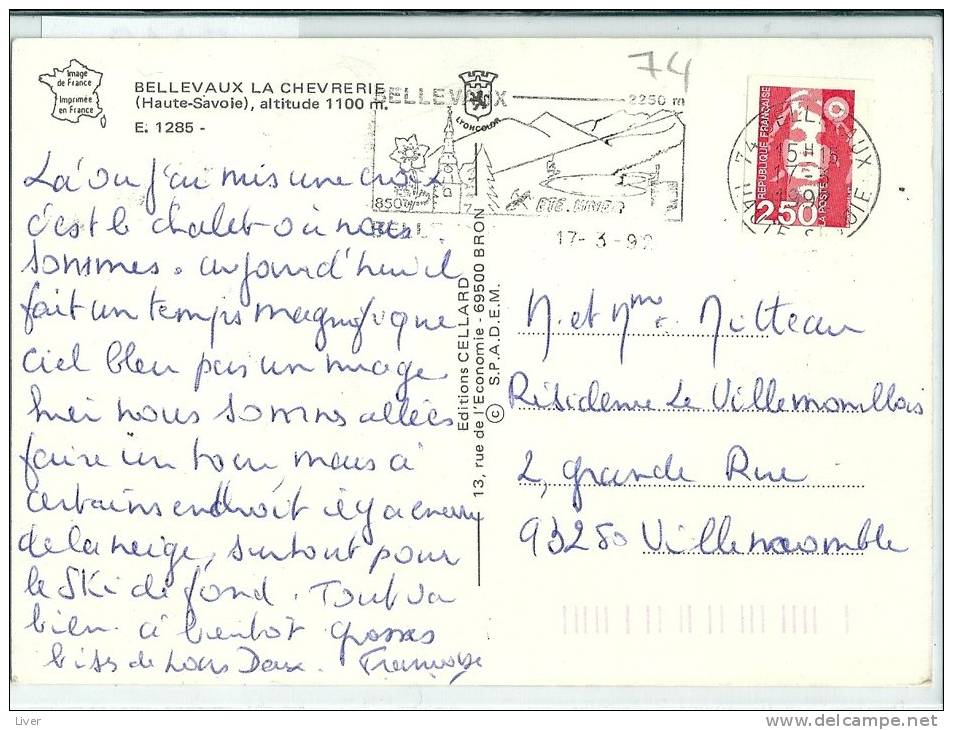 Image
de France
Imprimée
en France
BELLEVAUX LA CHEVRERIE
(Haute-Savoie), altitude 1100 m.
E. 1285 -
LYONCOLOR
74
BELLEVAUX
2250 m
850
ETE. HIVER
17-3-92
REPUBLIQUE FRANÇAISE
LA POSTE
2,50
Là où j'ai mis une croix
c'est le chalet où nous
sommes. aujourd'hui il
fait un temps magnifique
ciel bleu pas un nuage
hier nous sommes allées
faire un tour, mais à
certains endroit il y a encore
de la neige, surtout pour
le ski de fond. Tout va
bien à bientôt grosses
bises de tous Deux. Françoise
Editions CELLARD
13, rue de l'Economie - 69500 BRON
© S.P.A.D.E.M.
M. et Mme Mitteau
Résidence Le Villemomblois
2, grande Rue
93250 Villemomble
Liver
www.delcampe.net